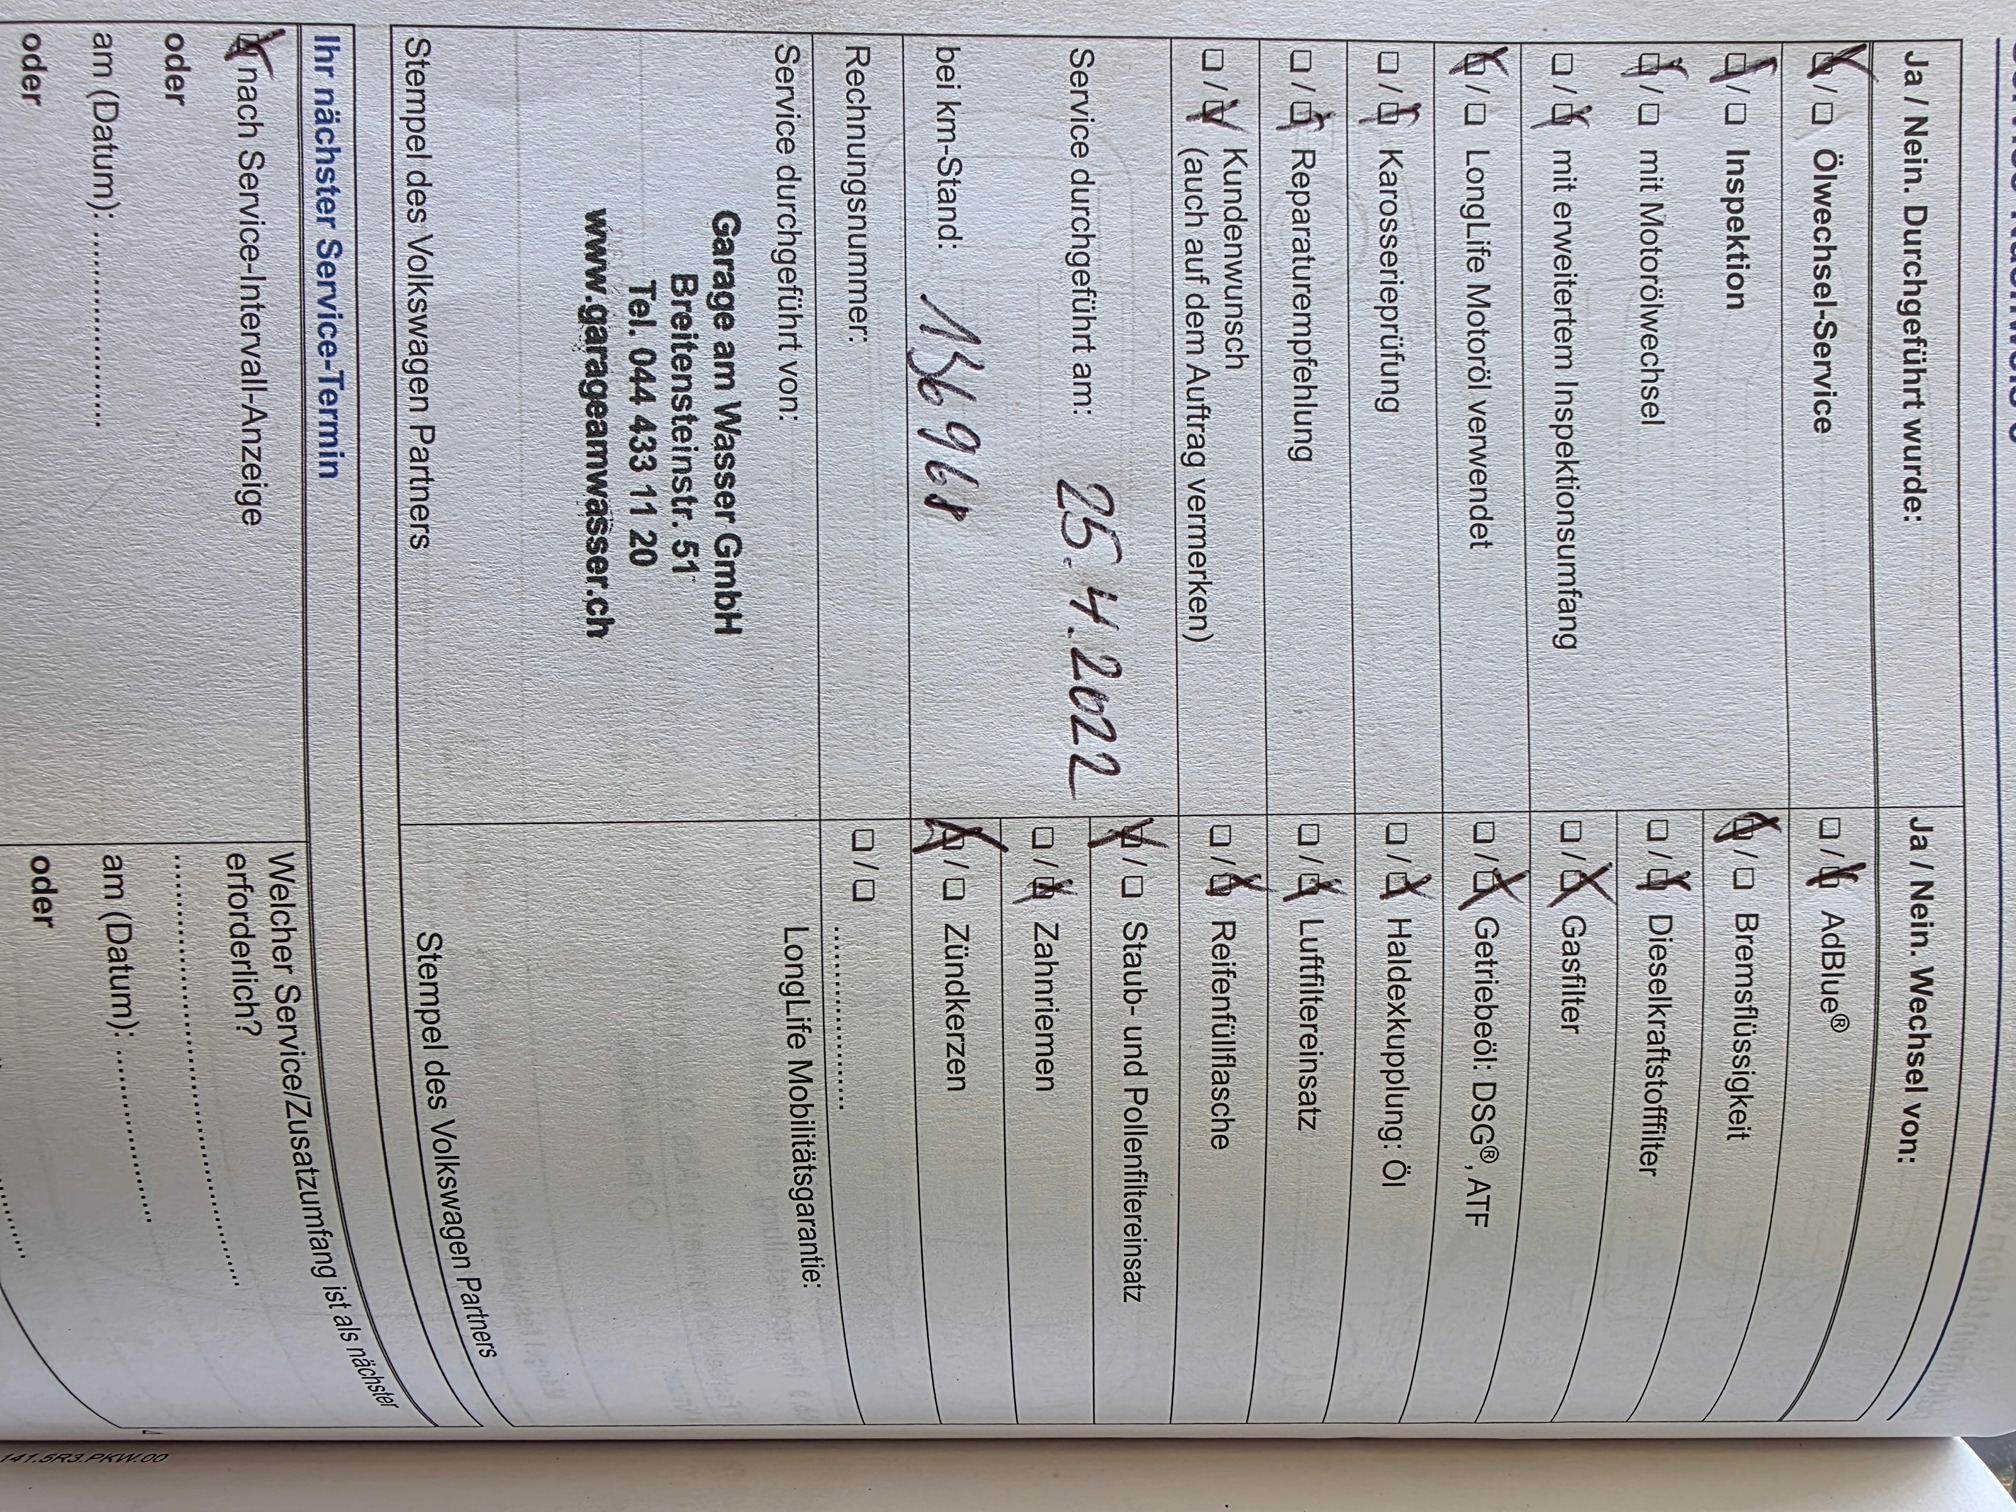 Ja / Nein. Durchgeführt wurde:
☒ / ☐ Ölwechsel-Service
☒ / ☐ Inspektion
☒ / ☐ mit Motorölwechsel
☐ / ☒ mit erweitertem Inspektionsumfang
☒ / ☐ LongLife Motoröl verwendet
☐ / ☒ Karosserieprüfung
☐ / ☒ Reparaturempfehlung
☐ / ☒ Kundenwunsch
(auch auf dem Auftrag vermerken)
Service durchgeführt am: 25.4.2022
bei km-Stand: 136968
Rechnungsnummer:
Service durchgeführt von:
Garage am Wasser GmbH
Breitensteinstr. 51
Tel. 044 433 11 20
www.garageamwasser.ch
Stempel des Volkswagen Partners
Ja / Nein. Wechsel von:
☐ / ☒ AdBlue®
☒ / ☐ Bremsflüssigkeit
☐ / ☒ Dieselkraftstofffilter
☐ / ☒ Gasfilter
☐ / ☒ Getriebeöl: DSG®, ATF
☐ / ☒ Haldexkupplung: Öl
☐ / ☒ Luftfiltereinsatz
☐ / ☒ Reifenfüllflasche
☒ / ☐ Staub- und Pollenfiltereinsatz
☐ / ☒ Zahnriemen
☒ / ☐ Zündkerzen
☐ / ☐ ....................
LongLife Mobilitätsgarantie:
Stempel des Volkswagen Partners
Ihr nächster Service-Termin
☒ nach Service-Intervall-Anzeige
oder
am (Datum): ....................
oder
Welcher Service/Zusatzumfang ist als nächster
erforderlich?
........................................
am (Datum): ....................
oder
141.5R3.PKW.00